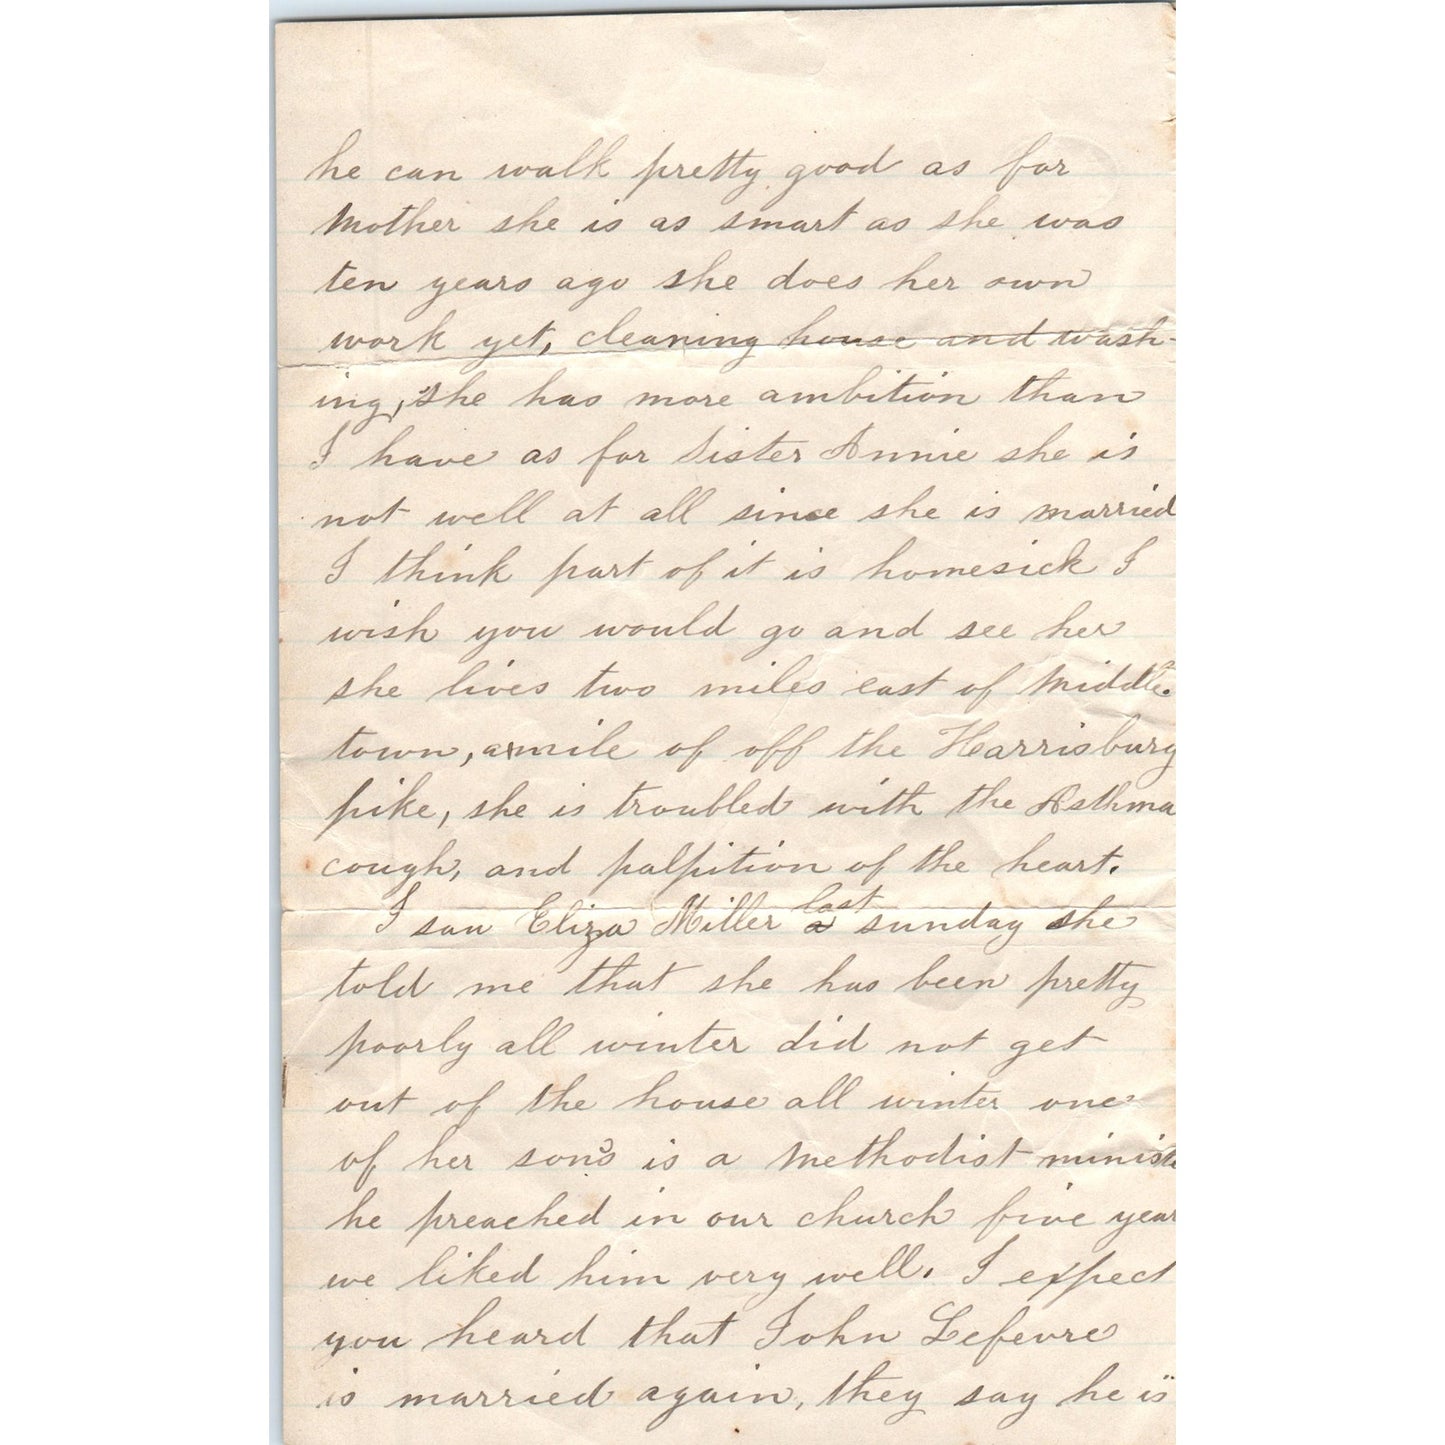 he can walk pretty good as for
Mother she is as smart as she was
ten years ago she does her own
work yet, cleaning house and wash-
ing, she has more ambition than
I have as for Sister Annie she is
not well at all since she is married
I think part of it is homesick I
wish you would go and see her
she lives two miles east of Middle
town, a mile of off the Harrisburg
pike, she is troubled with the Asthma
cough, and palpition of the heart.
I saw Eliza Miller last sunday she
told me that she has been pretty
poorly all winter did not get
out of the house all winter one
of her sons is a Methodist minist
he preached in our church five year
we liked him very well. I expect
you heard that John Lefevre
is married again, they say he is